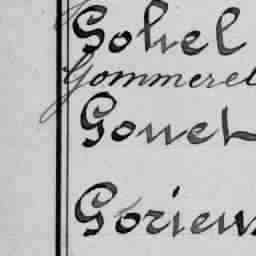 Gohel
Gommerel
Gonet
Goriens